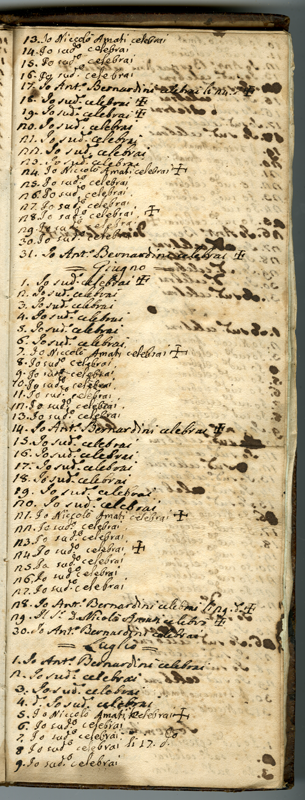 13. Io Niccolò Amati celebrai
14. Io sud.º celebrai
15. Io sud.º celebrai
16. Io sud.º celebrai
17. Io Ant.º Bernardini celebrai
18. Io sud.º celebrai ✠
19. Io sud.º celebrai ✠
20. Io sud.º celebrai
21. Io sud.º celebrai
22. Io sud.º celebrai
23. Io sud.º celebrai
24. Io Niccolò Amati celebrai ✠
25. Io sud.º celebrai
26. Io sud.º celebrai
27. Io sud.º celebrai
28. Io sud.º celebrai ✠
29. Io sud.º celebrai
30. Io sud.º celebrai
31. Io Ant.º Bernardini celebrai ✠
= Giugno =
1. Io sud.º celebrai ✠
2. Io sud.º celebrai
3. Io sud.º celebrai
4. Io sud.º celebrai
5. Io sud.º celebrai
6. Io sud.º celebrai
7. Io Niccolò Amati celebrai ✠
8. Io sud.º celebrai
9. Io sud.º celebrai
10. Io sud.º celebrai
11. Io sud.º celebrai
12. Io sud.º celebrai
13. Io sud.º celebrai
14. Io Ant.º Bernardini celebrai ✠
15. Io sud.º celebrai
16. Io sud.º celebrai
17. Io sud.º celebrai
18. Io sud.º celebrai
19. Io sud.º celebrai
20. Io sud.º celebrai
21. Io Niccolò Amati celebrai ✠
22. Io sud.º celebrai
23. Io sud.º celebrai
24. Io sud.º celebrai ✠
25. Io sud.º celebrai
26. Io sud.º celebrai
27. Io sud.º celebrai
28. Io Ant.º Bernardini celebrai ✠
29. Amati celebrò ✠
30. Io Ant.º Bernardini celebrai
= Luglio =
1. Io Ant.º Bernardini celebrai
2. Io sud.º celebrai
3. Io sud.º celebrai
4. Io sud.º celebrai
5. Io Niccolò Amati celebrai ✠
6. Io sud.º celebrai
7. Io sud.º celebrai
8 Io sud.º celebrai li 12. d.º
9. Io sud.º celebrai